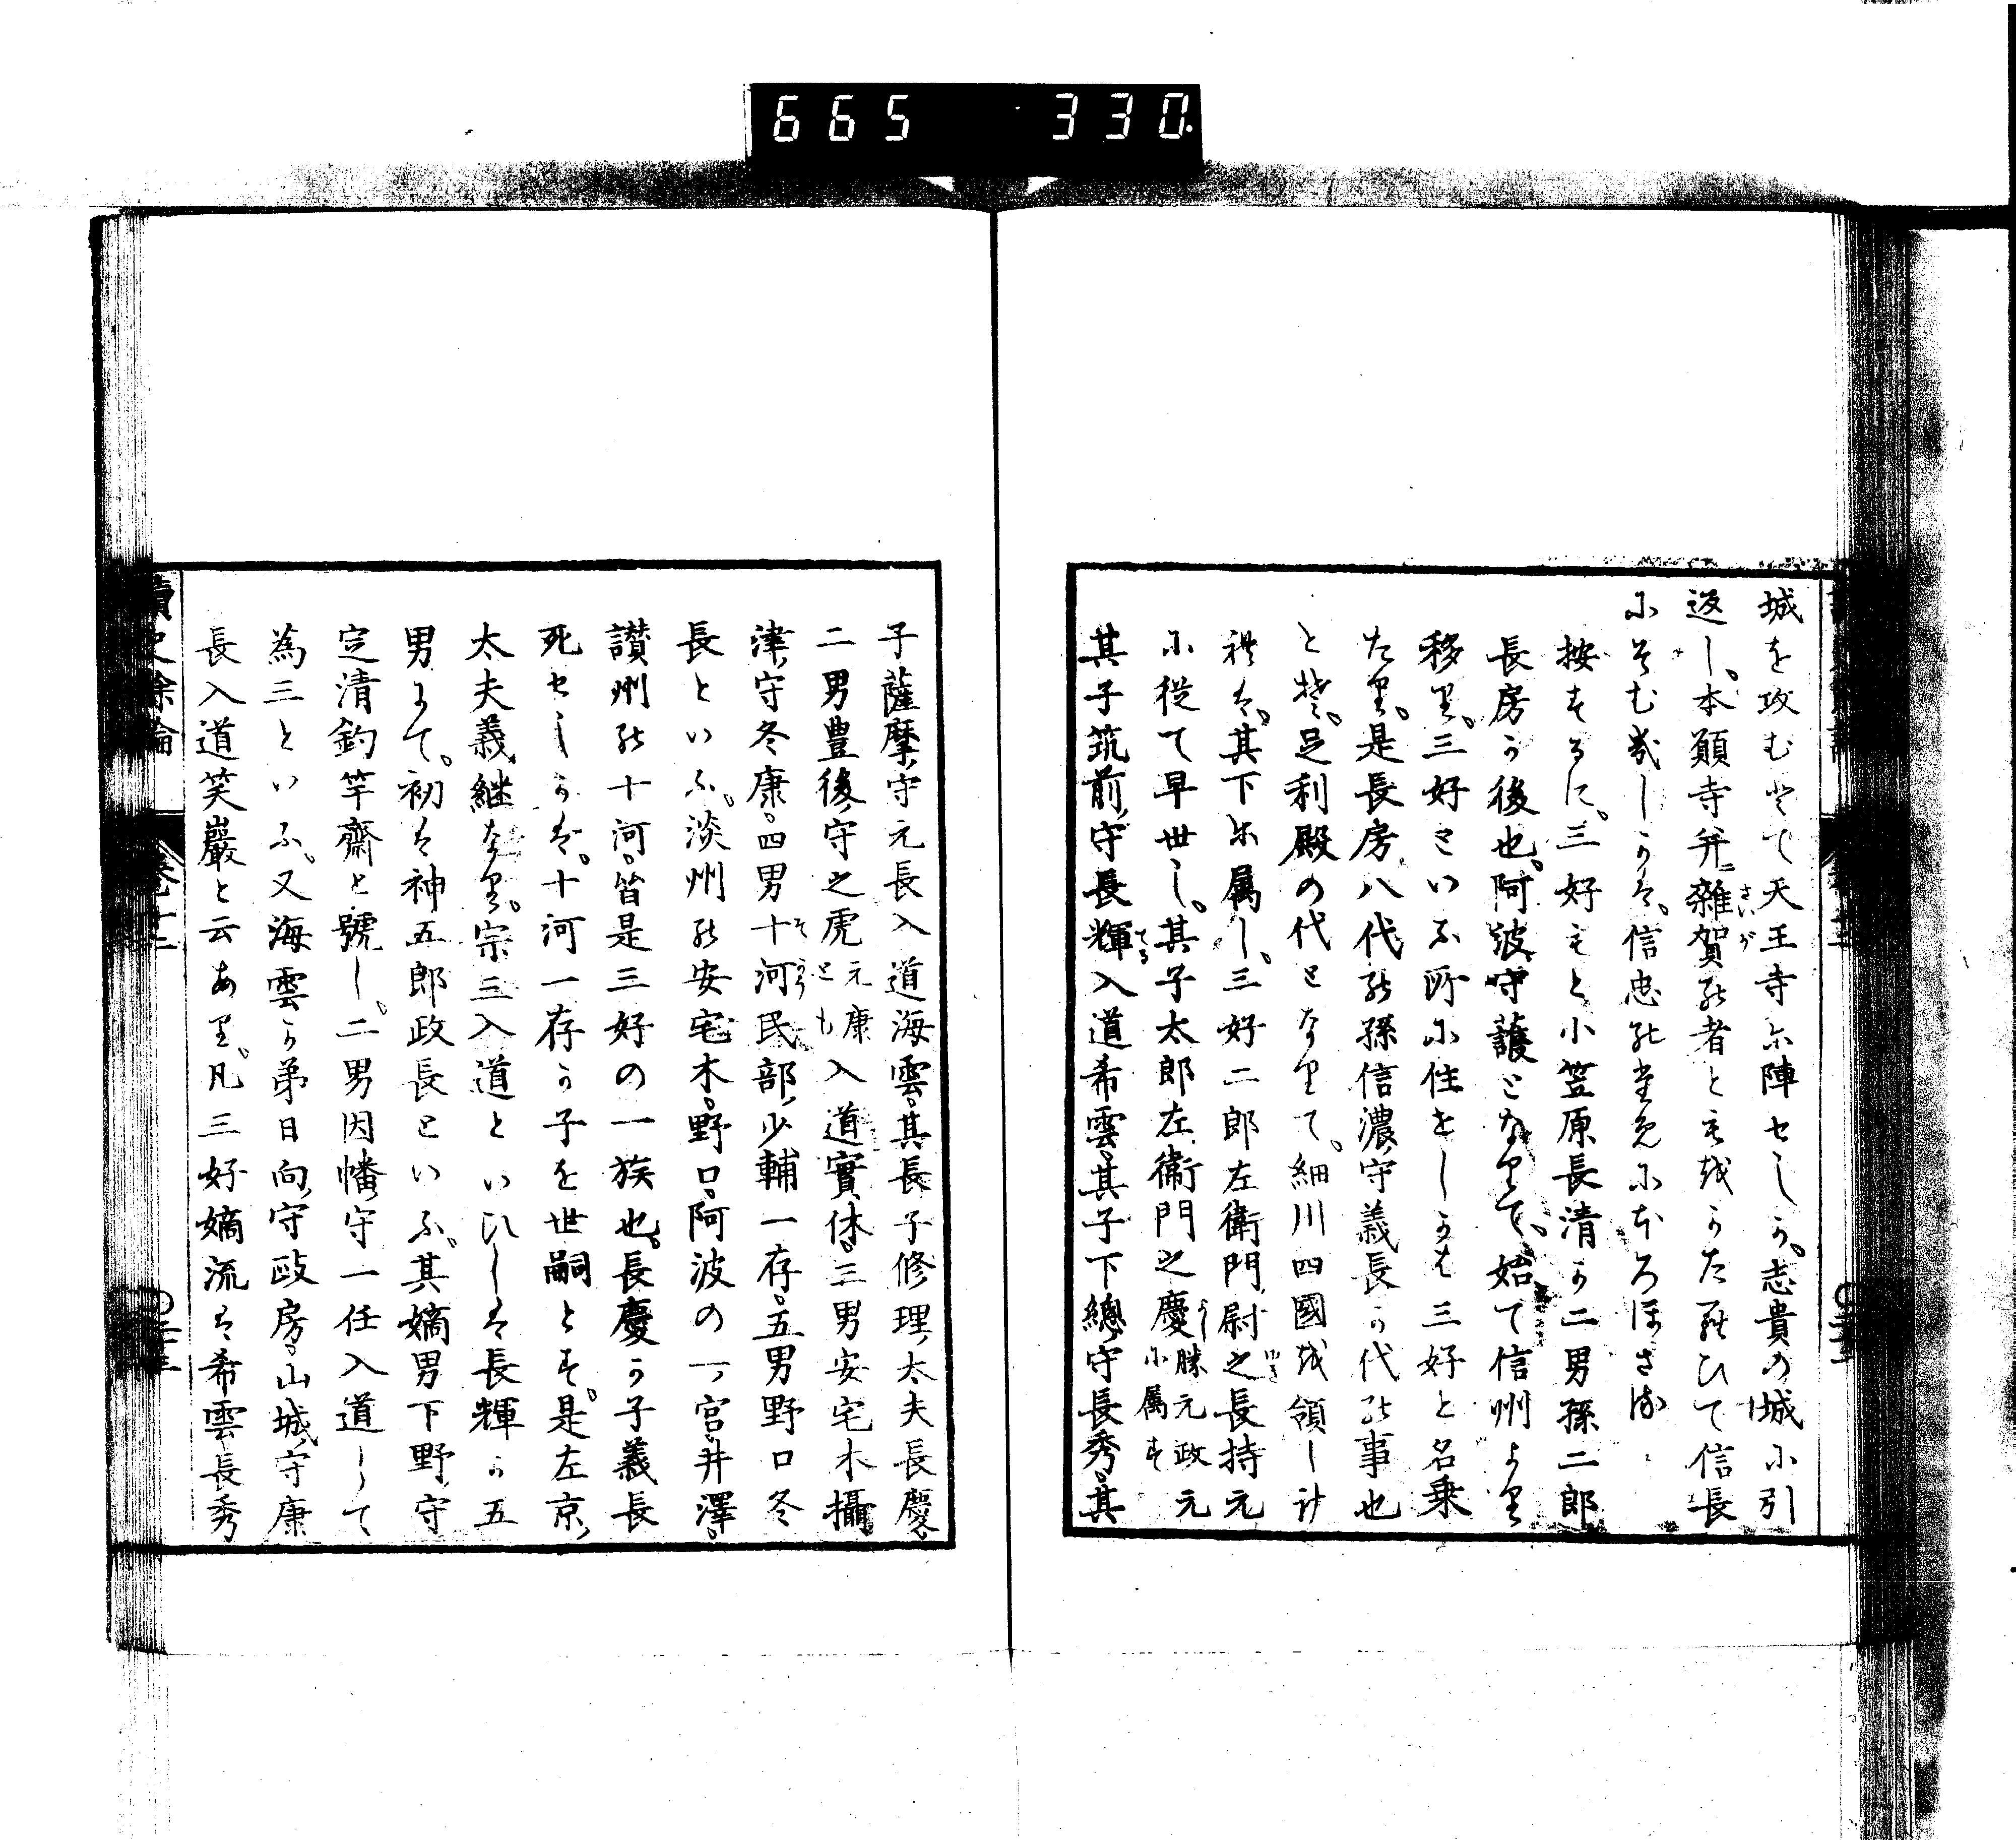 665 330.
城を攻むとて天王寺に陣セしか。志貴の城に引
返し。本願寺幷ニ雜賀の者とも我かたらひて信長
にそむきしかは。信忠のためにほろほさる
按するに。三好もと小笠原長清か二男孫二郎
長房か後也。阿波守護となりて。始て信州より
移り。三好といふ所に住をしかは三好と名乗
たり。是長房八代の孫信濃守義長か代の事也
と楚。足利殿の代となりて。細川四國を領し計
れは。其下に属し。三好二郎左衛門尉之長持元
に従て早世し。其子太郎左衛門之慶勝元政元に属す元
其子筑前守長輝入道希雲。其子下總守長秀。其
子薩摩守元長入道海雲。其長子修理太夫長慶。
二男豊後守之虎元康とも入道實休。三男安宅木攝
津守冬康。四男十河民部少輔一存。五男野口冬
長といふ。淡州の安宅木。野口。阿波の一宮。井澤。
讃州の十河。皆是三好の一族也。長慶か子義長
死セしかは。十河一存か子を世嗣とす。是左京
太夫義継なり。宗三入道といひしは長輝か五
男にて。初は神五郎政長といふ。其嫡男下野守
定清釣竿齋と號し。二男因幡守一任入道して
為三といふ。又海雲か弟日向守政房。山城守康
長入道笑巖と云あり。凡三好嫡流は希雲長秀
讀史餘論
巻十二